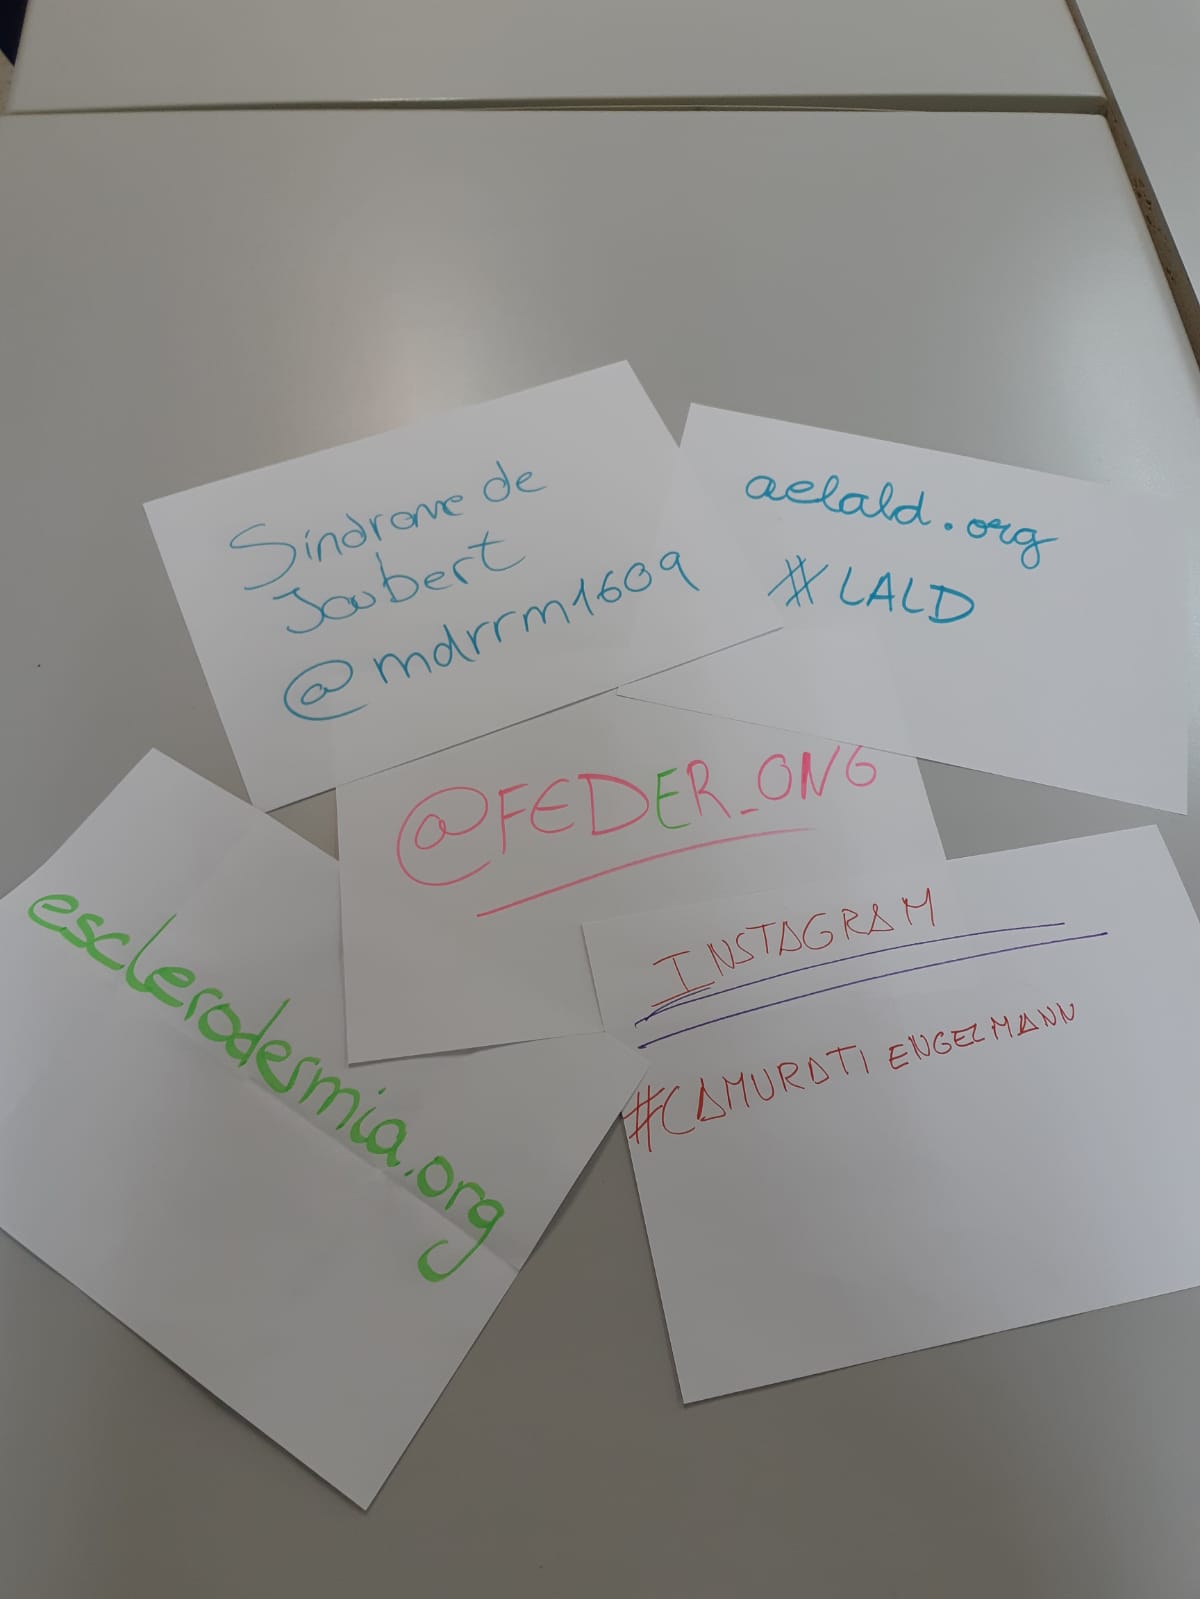 Síndrome de
Joubert
@mdrrm1609
aelald.org
#LALD
@FEDER_ONG
esclerodermia.org
INSTAGRAM
#CAMURATI ENGELMANN